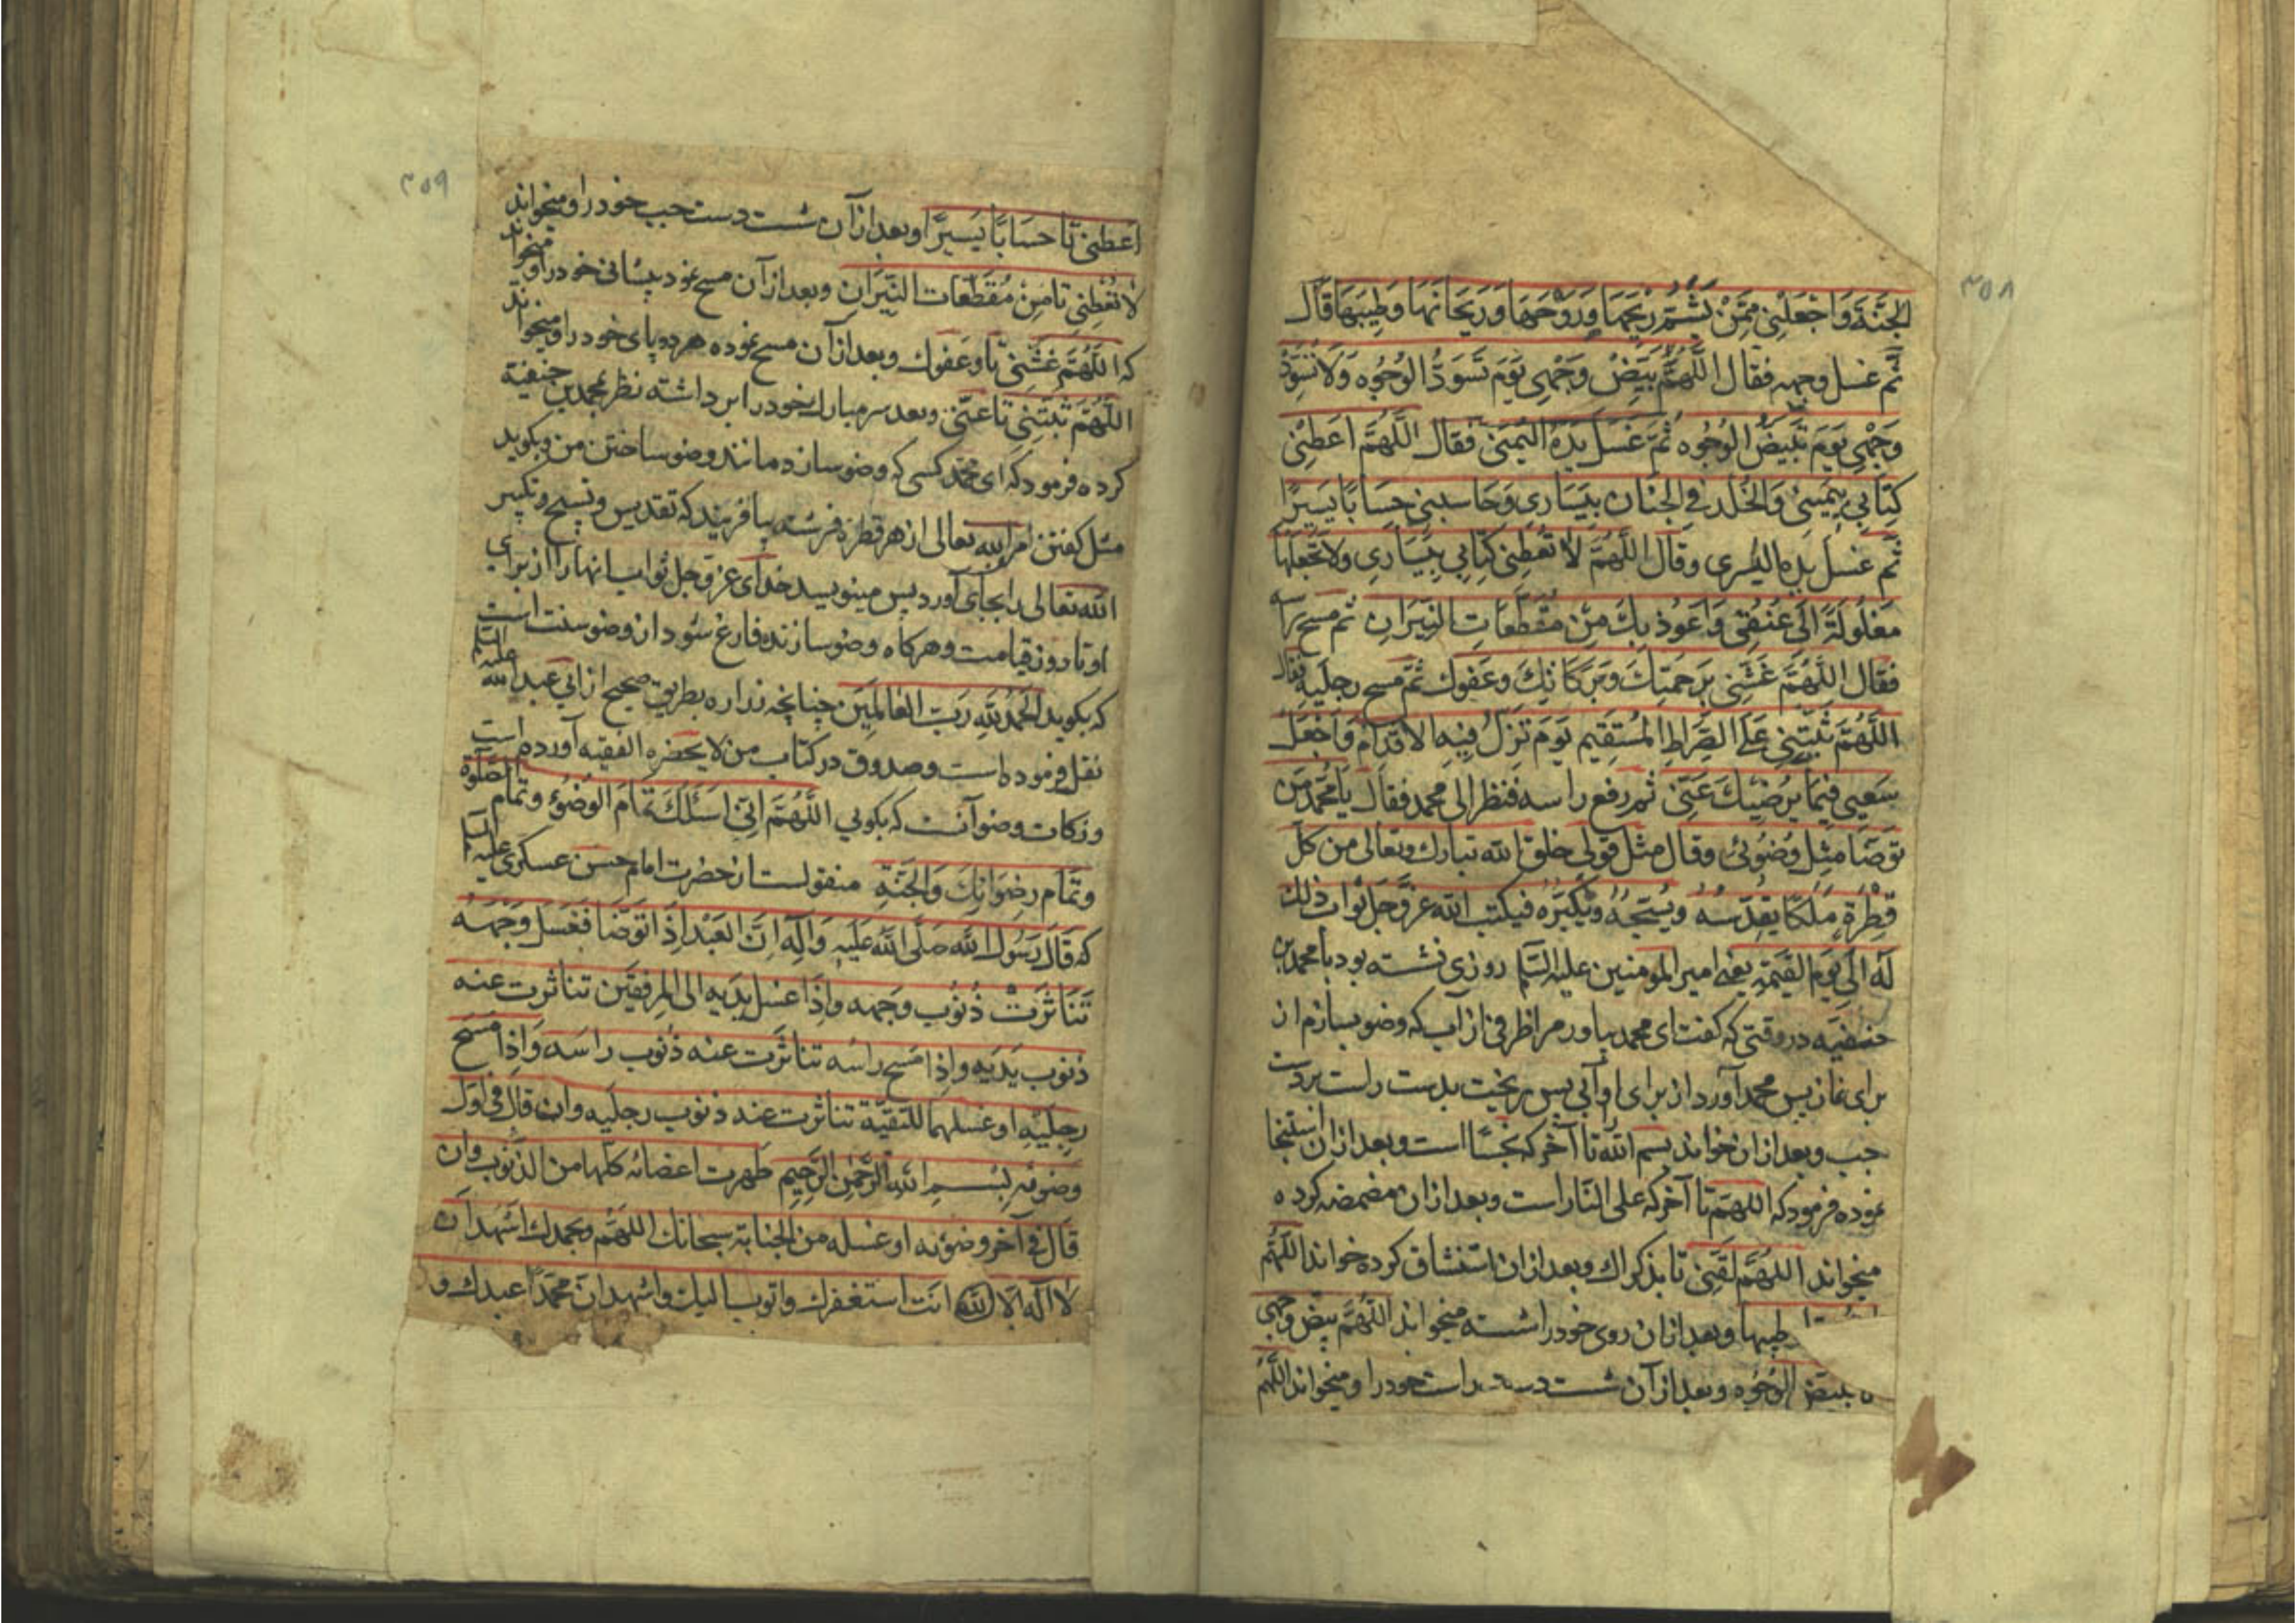 ۳۵۸
الجَنَّةَ وَاجْعَلْنِي مِمَّنْ يَشُمُّ رِيْحَهَا وَرَوْحَهَا وَرَيْحَانَهَا وَطِيبَهَا قَالَ
ثُمَّ غسل وجهه فقال اللَّهُمَّ بَيِّضْ وَجْهِى يَوْمَ تَسْوَدُّ الوُجُوه وَلَا تُسَوِّدْ
وَجْهِى يَوْمَ تَبْيَضُّ الوُجُوه ثُمَّ غَسَلَ يَدَهُ اليُمْنَى فقال اللَّهُمَّ اَعْطِنِي
كِتَابِي بِيَمِينِي وَالخُلْد فِي الجِنَان بِيَسَارِي وَحَاسِبْنِي حِسَابًا يَسِيرًا
ثُمَّ غسل يده اليُسرى وقال اللَّهُمَّ لَا تُعْطِنِي كِتَابِي بِيَسَارِي وَلَا تَجْعَلْهَا
مَغْلُولَةً اِلَى عُنُقِي وَاَعُوذ بِكَ مِنْ مُقَطَّعَاتِ النِّيرَانِ ثم مسح راسه
فقال اللَّهُمَّ غَشِّنِي بِرَحْمَتِكَ وَبَرَكَاتِكَ وَعَفْوِك ثُمَّ مسح رجلَيه فقال
اللَّهُمَّ ثَبِّتْنِي عَلَى الصِّرَاطِ المُسْتَقِيم يَوْمَ تَزِلُّ فِيهِ الاَقْدَام وَاجْعَلْ
سَعْيِي فِيمَا يُرْضِيكَ عَنِّي ثم رفع راسه فنظر الى محمد فقال يَا مُحَمَّد مَن
تَوَضَّا مِثل وُضُوئى وقال مثل قولى خلق الله تبارك وتعالى من كل
قَطْرَةٍ مَلَكًا يُقَدِّسُهُ وَيُسَبِّحُهُ وَيُكَبِّرُه فيكتب الله عزّ وجل ثواب ذلك
لَه الى يَوْم القِيٰمَةِ يعنى امير المومنين عليه السّلم روزى نشسته بود با محمد بن
حنفيّه در وقتى كه كفت اى محمد بياور مرا ظرفى از آب كه وضو بسازم از
براى نماز پس محمد آورد از براى او آبى پس ريخت بدست راست بر دست
چپ و بعد از ان خواند بسم الله تا آخر كه نجسًا است و بعد از ان استنجا
نموده فرمود كه اللهمّ تا آخر كه على النّار است و بعد از ان مضمضه كرده
ميخواند اللهُمَّ لَقِّنِي تا بذكراك و بعد از ان استنشاق كرده خواند اللّهُمَّ
طيبها و بعد از ان روى خود را شسته ميخواند اللّهُمَّ بيّض وجهى
تبيضّ الوُجُوه و بعد از آن شست دست راست خود را و ميخواند اللّهُمّ
۳۵۹
اَعطِنى تا حسَابًا يَسِيرًا و بعد از آن شست دست چپ خود را و ميخواند
لَا تُعْطِنِي تا مِنْ مُقَطَّعات النِّيرَان و بعد از آن مسح نمود پيشانى خود را و ميخواند
كه اللّهُمَّ غَشِّنِي تا وعَفوك و بعد از آن مسح نموده هر دو پاى خود را و ميخواند
اللّهُمَّ ثَبِّتْنِي تا عنّى و بعد سر مبارك خود را بر داشته نظر بمحمد بن حنفيّة
كرده فرمود كه اى محمّد كسى كه وضو سازد مانند وضو ساختن من و بكويد
مثل كفتن من الله تعالى از هر قطرۀ فرشته بيافريند كه تقديس و تسبيح و تكبير
الله تعالى را بجاى آورد پس مينويسد خداى عزّ وجل ثواب اينها را از براى
او تا روز قيامت و هر كاه وضو سازنده فارغ شود از وضو سنت است
كه بكويد الحَمْدُ لِلّٰهِ رَبِّ العَالَمِينَ چنانچه زراره بطريق صحيح از ابى عبد الله عليه السّلم
نقل فرموده است و صدوق در كتاب من لا يحضره الفقيه آورده است
و زكات وضو آنست كه بكويى اللّهُمَّ اِنّى اَسْئَلُكَ تَمَام الوُضُوءِ وتمام الصّلٰوة
وتَمَام رِضْوَانِكَ وَالجَنَّةِ منقولست از حضرت امام حسن عسكرى عليه السّلم
كه قَالَ رَسُول الله صَلَّى اللهُ عَلَيْهِ وَآلِه اِنَّ العَبْد اِذَا تَوَضَّا فَغَسَلَ وَجْهَهُ
تَنَاثَرَتْ ذُنُوب وَجهه واِذَا غسل يدَيه الى المِرفقَين تناثرت عنه
ذنوب يَدَيه واِذا مَسح راسَه تناثَرت عنه ذنوب راسه وَاِذا مَسَحَ
رِجلَيْهِ او غسلهما للتقيّة تناثرت عنه ذنوب رجلَيه وان قال فى اوّل
وضوئه بِسْمِ اللهِ الرَّحْمٰنِ الرَّحِيمِ طهرت اعضائه كلها من الذنوب وان
قَالَ في آخر وضوئه او غسله من الجنابة سبحانك اللّهُمَّ وبحمدك اشهد ان
لَا اِلٰه اِلّا الله انت استغفرك واتوب اليك واشهد انّ محمّدًا عبدك و